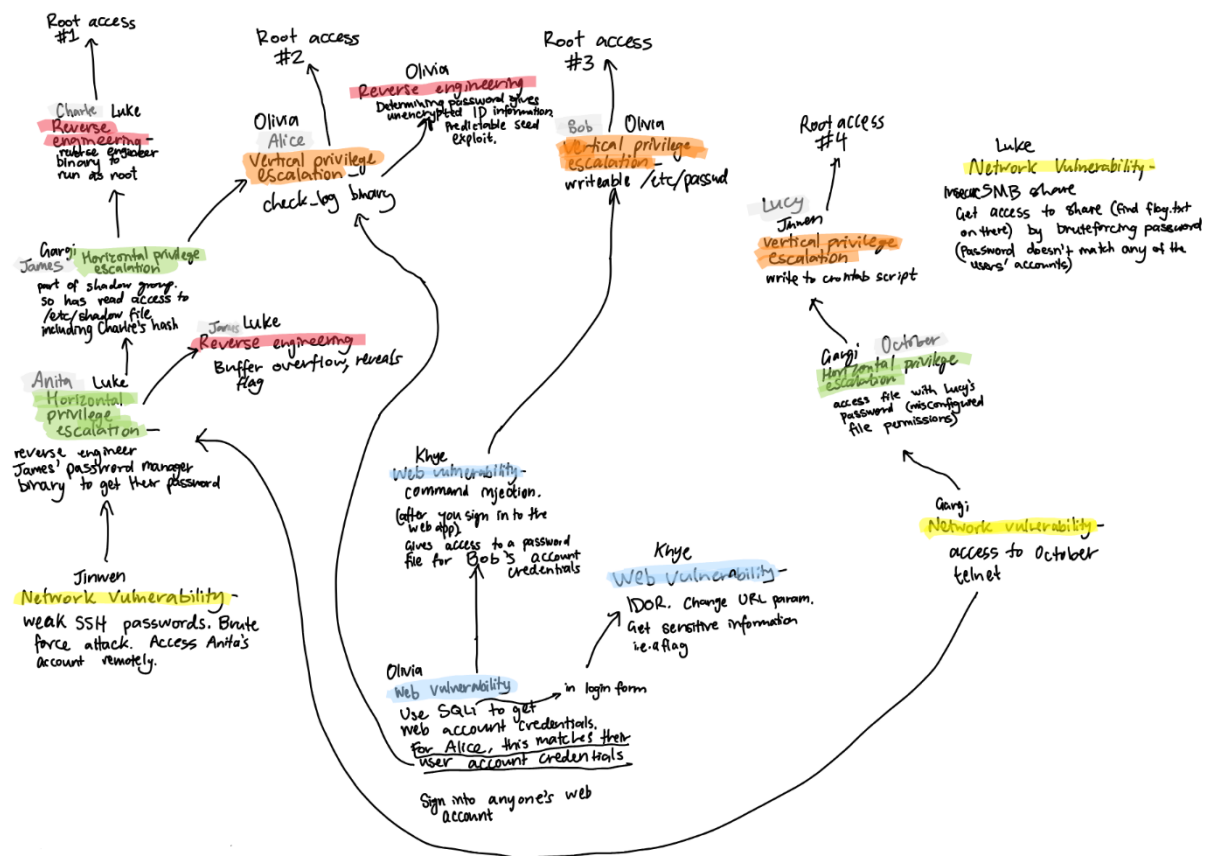 Root access
#1
Charlie Luke
Reverse
engineering -
reverse engineer
binary to
run as root
Gargi
James Horizontal privilege
escalation -
part of shadow group.
so has read access to
/etc/shadow file
including Charlie's hash
Anita Luke
Horizontal
privilege
escalation -
reverse engineer
James' password manager
binary to get their password
Jinwen
Network Vulnerability -
weak SSH passwords. Brute
force attack. Access Anita's
account remotely.
James Luke
Reverse engineering
Buffer overflow, reveals
flag
Root access
#2
Olivia
Alice
Vertical privilege
escalation -
check_log binary
Olivia
Reverse engineering
Determining password gives
unencrypted ID information.
Predictable seed
exploit.
Root access
#3
Bob Olivia
Vertical privilege
escalation -
writeable /etc/passwd
Khye
Web vulnerability -
command injection.
(after you sign in to the
web app).
Gives access to a password
file for Bob's account
credentials
Olivia
Web vulnerability
Use SQLi to get
web account credentials.
For Alice, this matches their
user account credentials
Sign into anyone's web
account
in login form
Khye
Web Vulnerability -
IDOR. Change URL param.
Get sensitive information
i.e. a flag
Root access
#4
Lucy
Jinwen
Vertical privilege
escalation -
write to crontab script
Gargi October
Horizontal privilege
escalation -
access file with Lucy's
password (misconfigured
file permissions)
Gargi
Network vulnerability -
access to October
telnet
Luke
Network Vulnerability -
Insecure SMB share
Get access to share (find flag.txt
on there) by bruteforcing password
(Password doesn't match any of the
users' accounts)